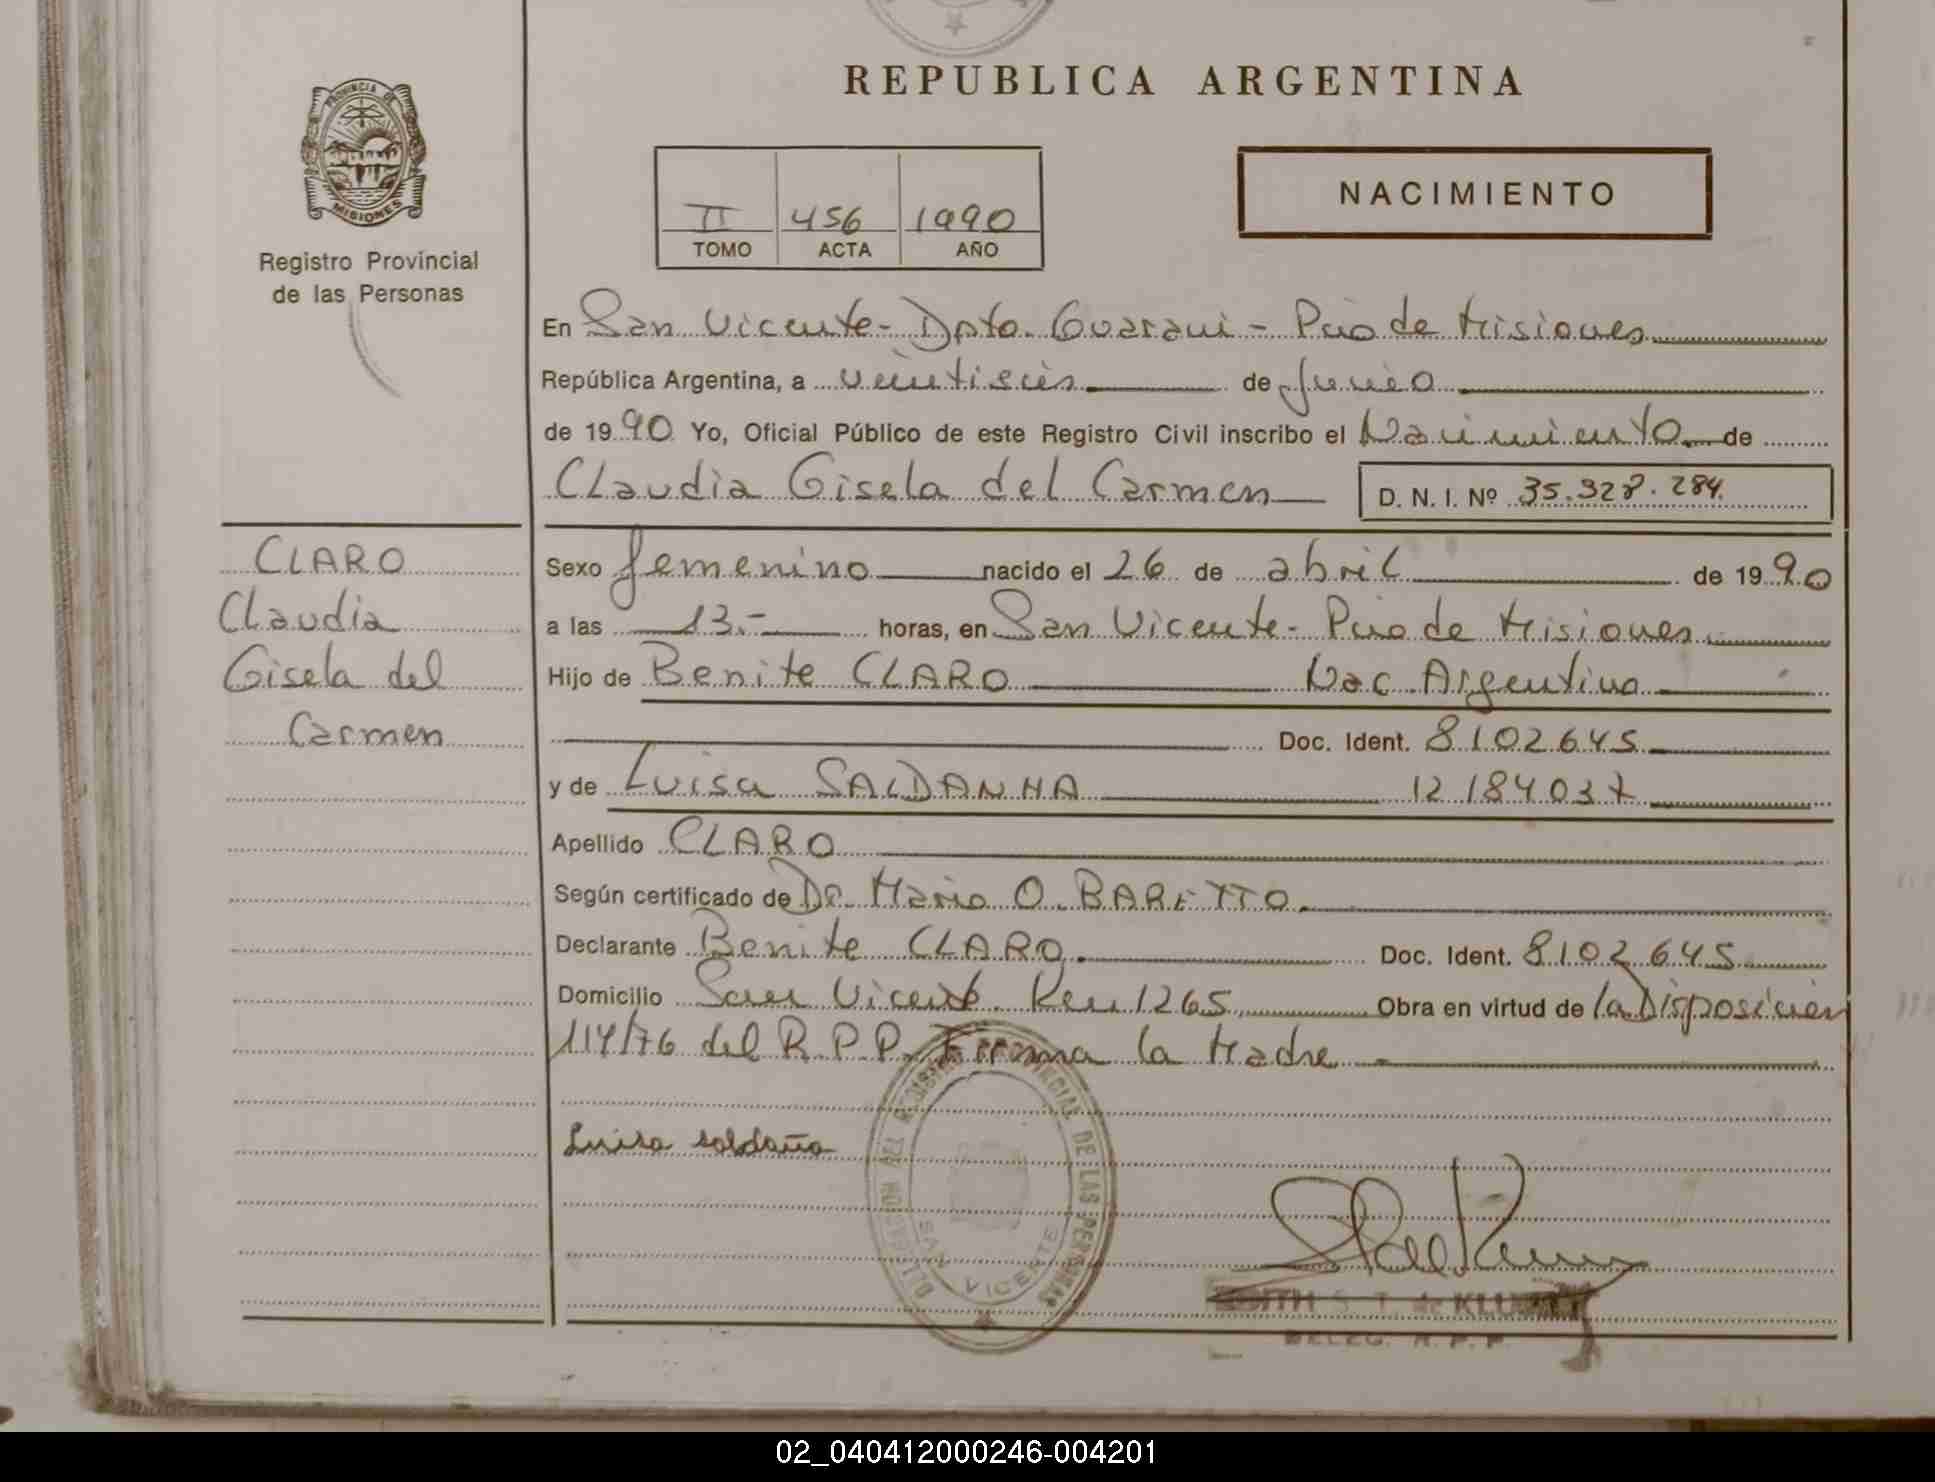 REPUBLICA ARGENTINA
PROVINCIA DE MISIONES
Registro Provincial
de las Personas
II 456 1990
TOMO ACTA AÑO
NACIMIENTO
En San Vicente - Dpto. Guarani - Pcia de Misiones
República Argentina, a veintiseis de Junio
de 1990 Yo, Oficial Público de este Registro Civil inscribo el Nacimiento de
Claudia Gisela del Carmen D. N. I. Nº 35.328.284
CLARO
Claudia
Gisela del
Carmen
Sexo femenino nacido el 26 de abril de 1990
a las 13.- horas, en San Vicente - Pcia de Misiones
Hijo de Benite CLARO Nac Argentina
Doc. Ident. 8102645
y de Luisa SALDANHA 12184037
Apellido CLARO
Según certificado de Dr. Mario O. BARETTO
Declarante Benite CLARO Doc. Ident. 8102645
Domicilio San Vicente Km 1265 Obra en virtud de la Disposición
114/76 del R.P.P. Firma la Madre
Luisa saldaña
DELEGACION DEL REGISTRO PROVINCIAL DE LAS PERSONAS
SAN VICENTE
S. T. de
DELEG. R. P. P.
02_040412000246-004201